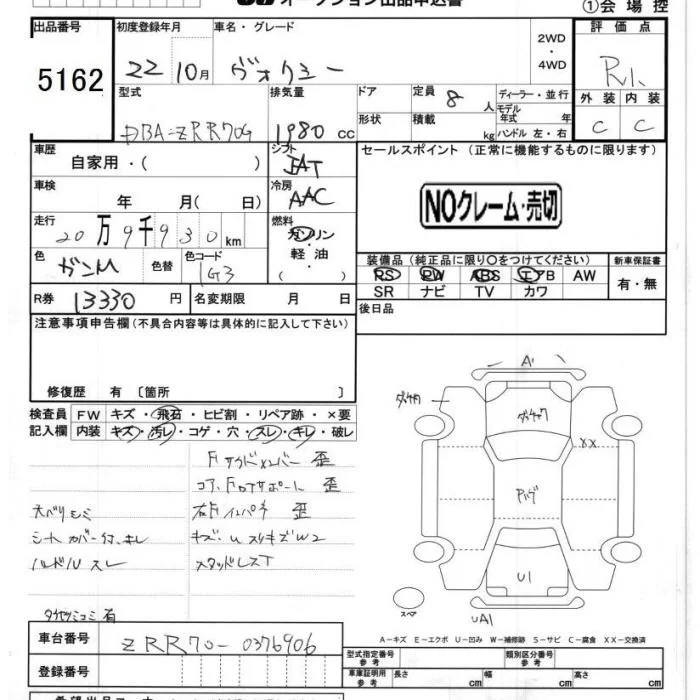 オークション出品申込書
①会場控
出品番号 初度登録年月 車名・グレード 評価点
5162
22 10月 ヴォクシー 2WD・4WD R1
型式 排気量 ドア 定員 8 人 ディーラー・並行 外装 内装
DBA-ZRR70G 1980 cc 形状 積載 kg モデル年式 年 ハンドル 左・右 C C
車歴 自家用・( ) シフト FAT セールスポイント(正常に機能するものに限ります)
車検 年 月( 日) 冷房 AAC
NOクレーム・売切
走行 20万9千930km 燃料 ガソリン 軽油 ( )
装備品(純正品に限り〇をつけてください) 新車保証書
色 ガンM 色替 色コード 1G3 PS PW ABS エアB AW 有・無
SR ナビ TV カワ
R券 13330 円 名変期限 月 日 後日品
注意事項申告欄(不具合内容等は具体的に記入して下さい)
修復歴 有 〔箇所 〕
検査員 FW キズ・飛石・ヒビ割・リペア跡・×要
記入欄 内装 キズ・汚レ・コゲ・穴・スレ・キレ・破レ
Fサイドメンバー 歪
コア、FロアサポートL 歪
右Fインパネ 歪
シートカバー付、キレ キズ・Uスリキズ W2
ハンドルスレ スタッドレスT
有
A'
XX
U1
UA1
スペア
A-キズ E-エクボ U-凹み W-補修跡 S-サビ C-腐食 XX-交換済
車台番号 ZRR70-0376906
型式指定番号 参考 類別区分番号 参考
登録番号 車庫証明用 参考 長さ cm 幅 cm 高さ cm